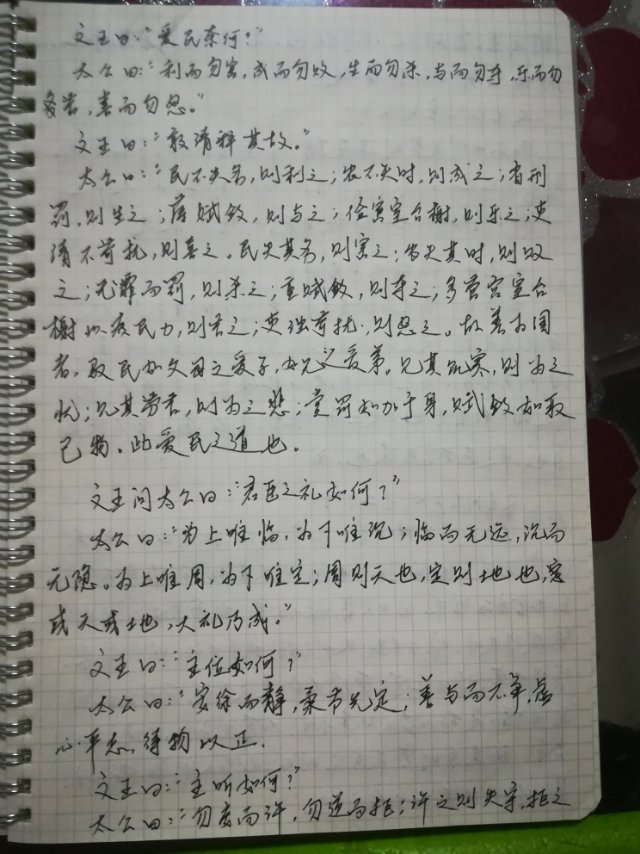 文王曰:“爱民奈何?”
太公曰:“利而勿害,成而勿败,生而勿杀,与而勿夺,乐而勿
苦,喜而勿怒。”
文王曰:“敢请释其故。”
太公曰:“民不失务,则利之;农不失时,则成之;省刑
罚,则生之;薄赋敛,则与之;俭宫室台榭,则乐之;吏
清不苛扰,则喜之。民失其务,则害之;农失其时,则败
之;无罪而罚,则杀之;重赋敛,则夺之;多营宫室台
榭以疲民力,则苦之;吏浊苛扰,则怒之。故善为国
者,驭民如父母之爱子,如兄之爱弟。见其饥寒,则为之
忧;见其劳苦,则为之悲;赏罚如加于身,赋敛如取
己物。此爱民之道也。
文王问太公曰:“君臣之礼如何?”
太公曰:“为上唯临,为下唯沉;临而无远,沉而
无隐。为上唯周,为下唯定;周则天也,定则地也,
或天或地,大礼乃成。”
文王曰:“主位如何?”
太公曰:“安徐而静,柔节先定;善与而不争,虚
心平志,待物以正.
文王曰:“主听如何?”
太公曰:“勿妄而许,勿逆而拒;许之则失守,拒之